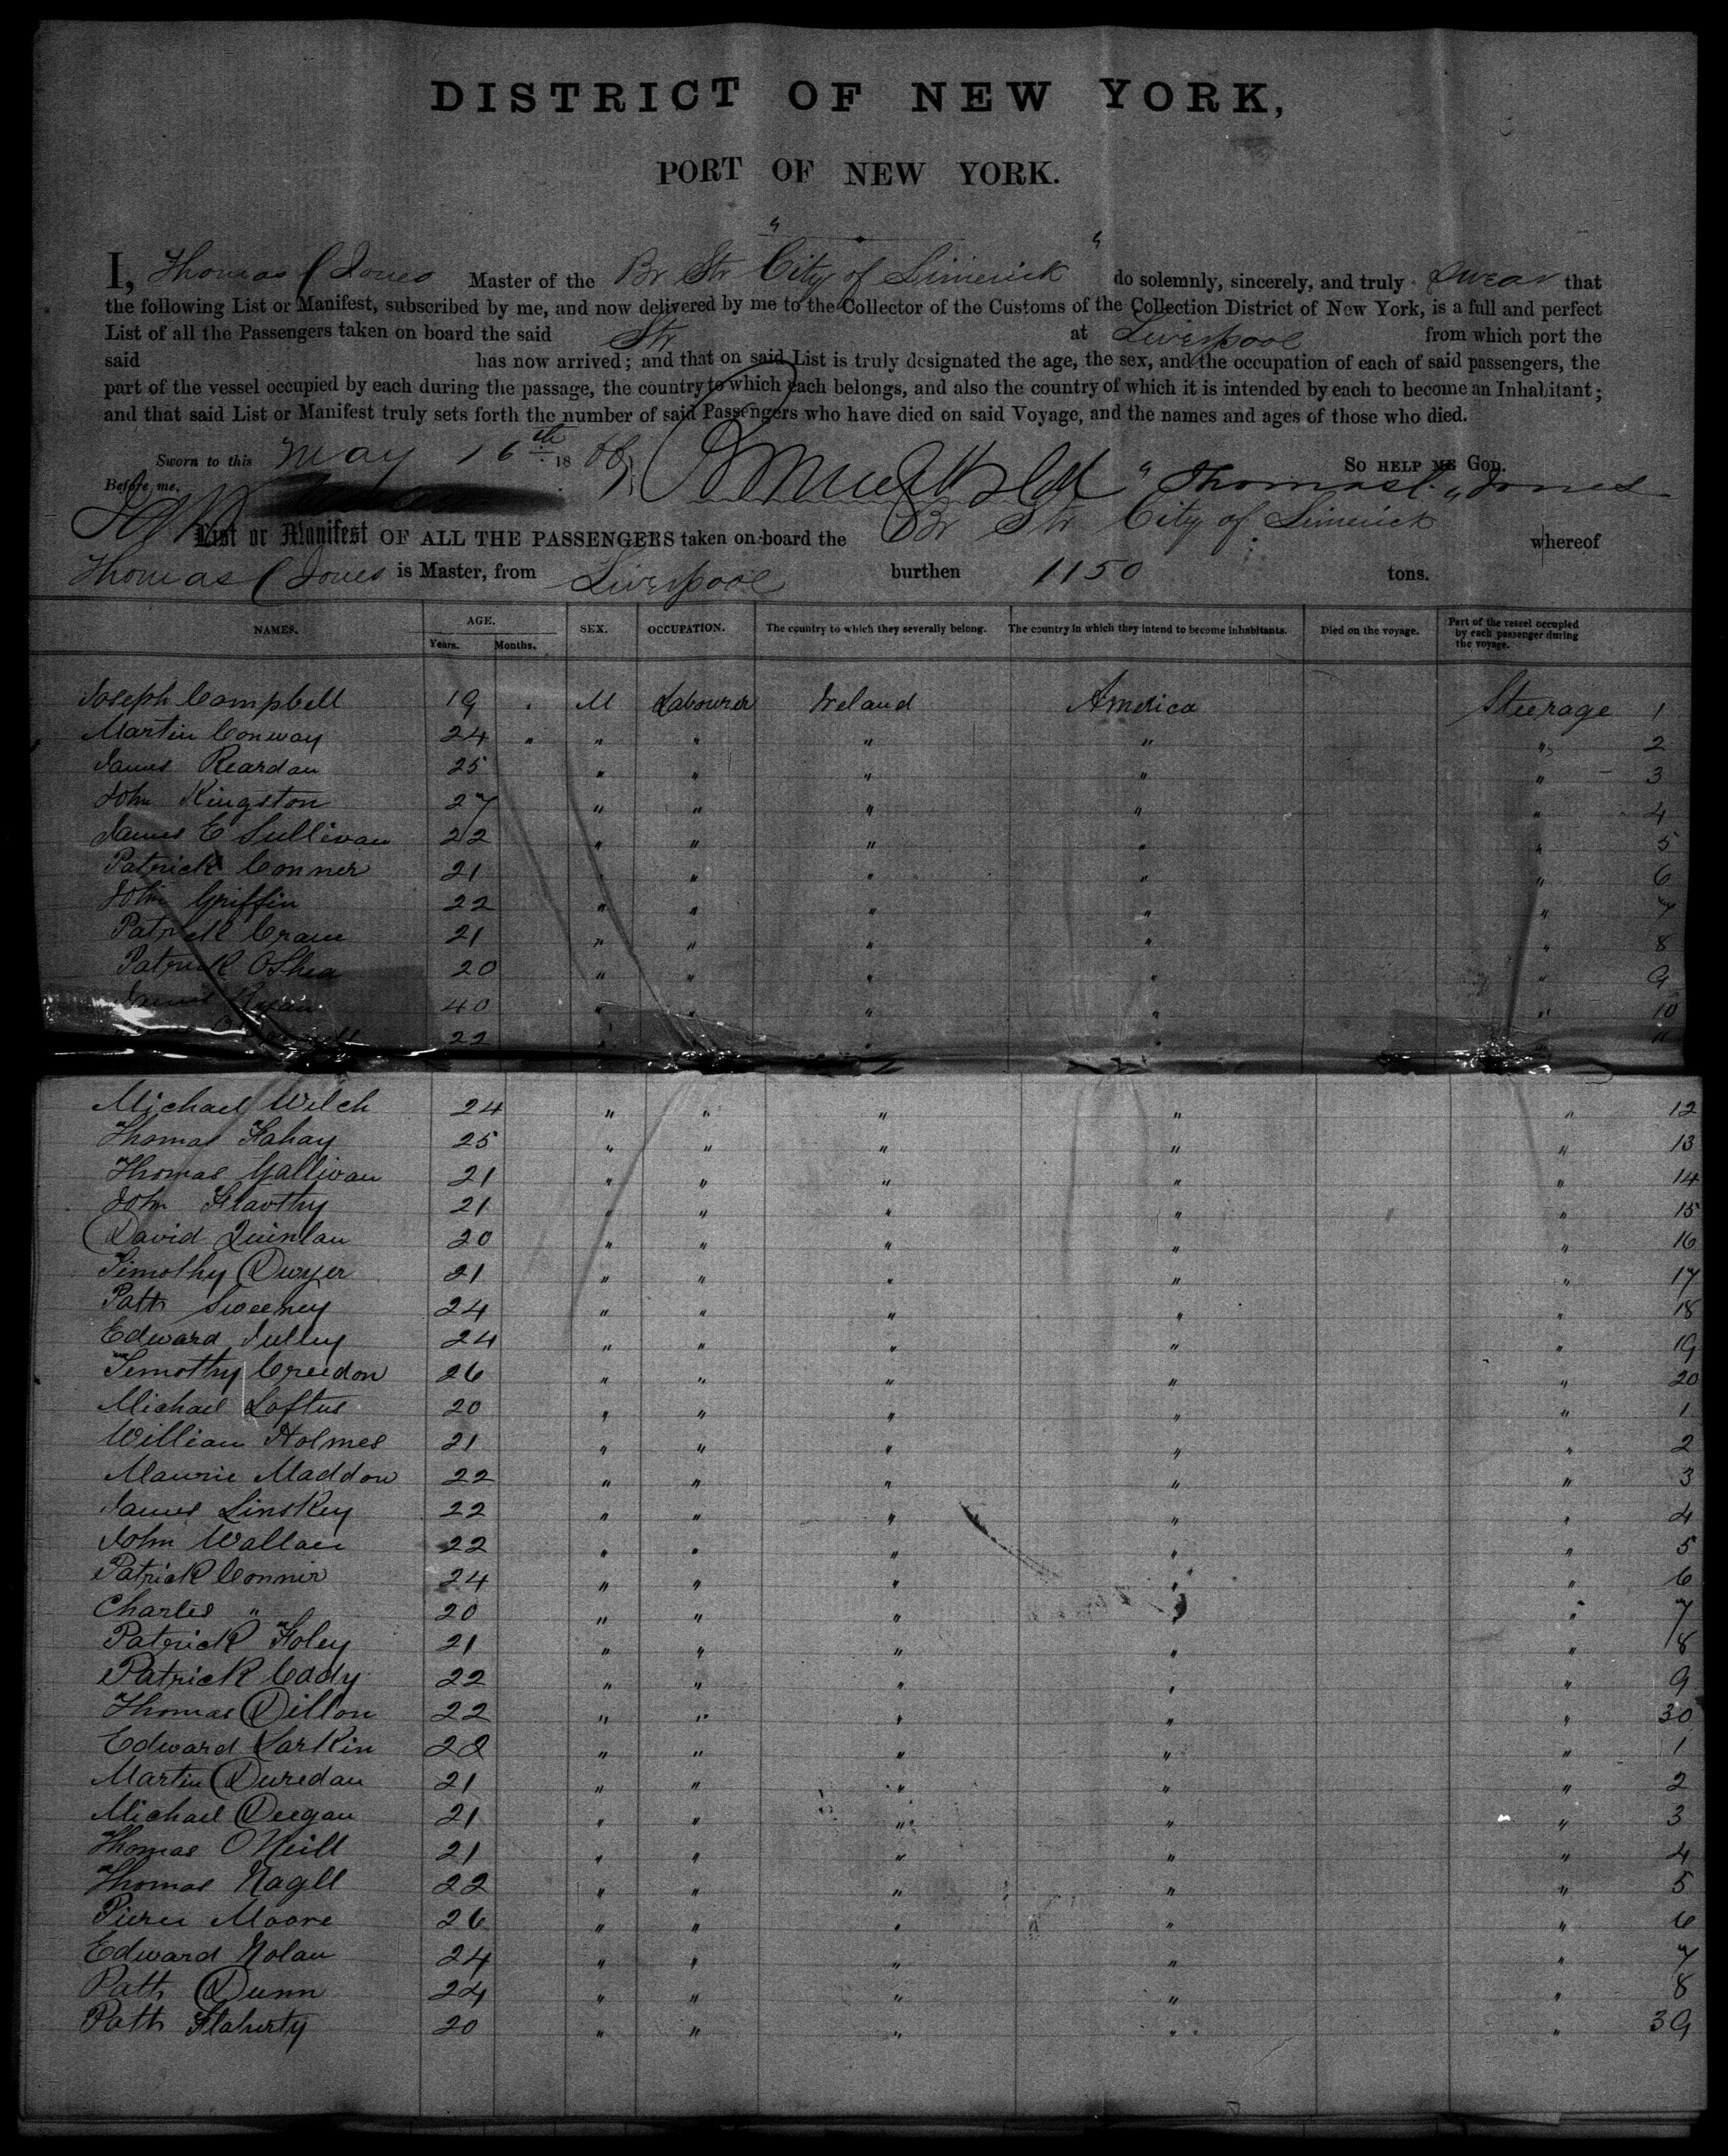 DISTRICT OF NEW YORK,
PORT OF NEW YORK.
I, Thomas C Jones Master of the Br Str City of Limerick do solemnly, sincerely, and truly swear that
the following List or Manifest, subscribed by me, and now delivered by me to the Collector of the Customs of the Collection District of New York, is a full and perfect
List of all the Passengers taken on board the said Str at Liverpool from which port the
said has now arrived; and that on said List is truly designated the age, the sex, and the occupation of each of said passengers, the
part of the vessel occupied by each during the passage, the country to which each belongs, and also the country of which it is intended by each to become an Inhabitant;
and that said List or Manifest truly sets forth the number of said Passengers who have died on said Voyage, and the names and ages of those who died.
Sworn to this May 16th 18 So HELP ME GOD.
Before me, Thomas C. Jones
List or Manifest OF ALL THE PASSENGERS taken on board the Br Str City of Limerick whereof
Thomas C Jones is Master, from Liverpool burthen 1150 tons.
NAMES. AGE. Years. Months. SEX. OCCUPATION. The country to which they severally belong. The country in which they intend to become inhabitants. Died on the voyage. Part of the vessel occupied by each passenger during the voyage.
Joseph Campbell 19 . M Labourer Ireland America Steerage 1
Martin Conway 24 " " " " " " 2
James Reardan 25 " " " " " 3
John Kingston 27 " " " " " 4
James E Sullivan 22 " " " " " 5
Patrick Conner 21 " " " " " 6
John Griffin 22 " " " " " 7
Patrick Crane 21 " " " " " 8
Patrick OShea 20 " " " " " 9
James Ryan 40 " " " " " 10
22 " " " " " 11
Michael Welch 24 " " " " " 12
Thomas Fahay 25 " " " " " 13
Thomas Gallivan 21 " " " " " 14
John Flavthy 21 " " " " " 15
David Quinlan 20 " " " " " 16
Timothy Dwyer 21 " " " " " 17
Patk Sweeney 24 " " " " " 18
Edward Julley 24 " " " " " 19
Timothy Creedon 26 " " " " " 20
Michael Loftus 20 " " " " " 1
William Holmes 21 " " " " " 2
Maurice Maddon 22 " " " " " 3
James Linskey 22 " " " " " 4
John Wallace 22 " " " " " 5
Patrick Conner 24 " " " " " 6
Charles " 20 " " " " " 7
Patrick Foley 21 " " " " " 8
Patrick Cody 22 " " " " " 9
Thomas Dillon 22 " " " " " 30
Edward Larkin 22 " " " " " 1
Martin Duredan 21 " " " " " 2
Michael Deegan 21 " " " " " 3
Thomas ONeill 21 " " " " " 4
Thomas Nagle 22 " " " " " 5
Pierce Moore 26 " " " " " 6
Edward Nolan 24 " " " " " 7
Patk Dunn 24 " " " " " 8
Patk Flaherty 20 " " " " " 39